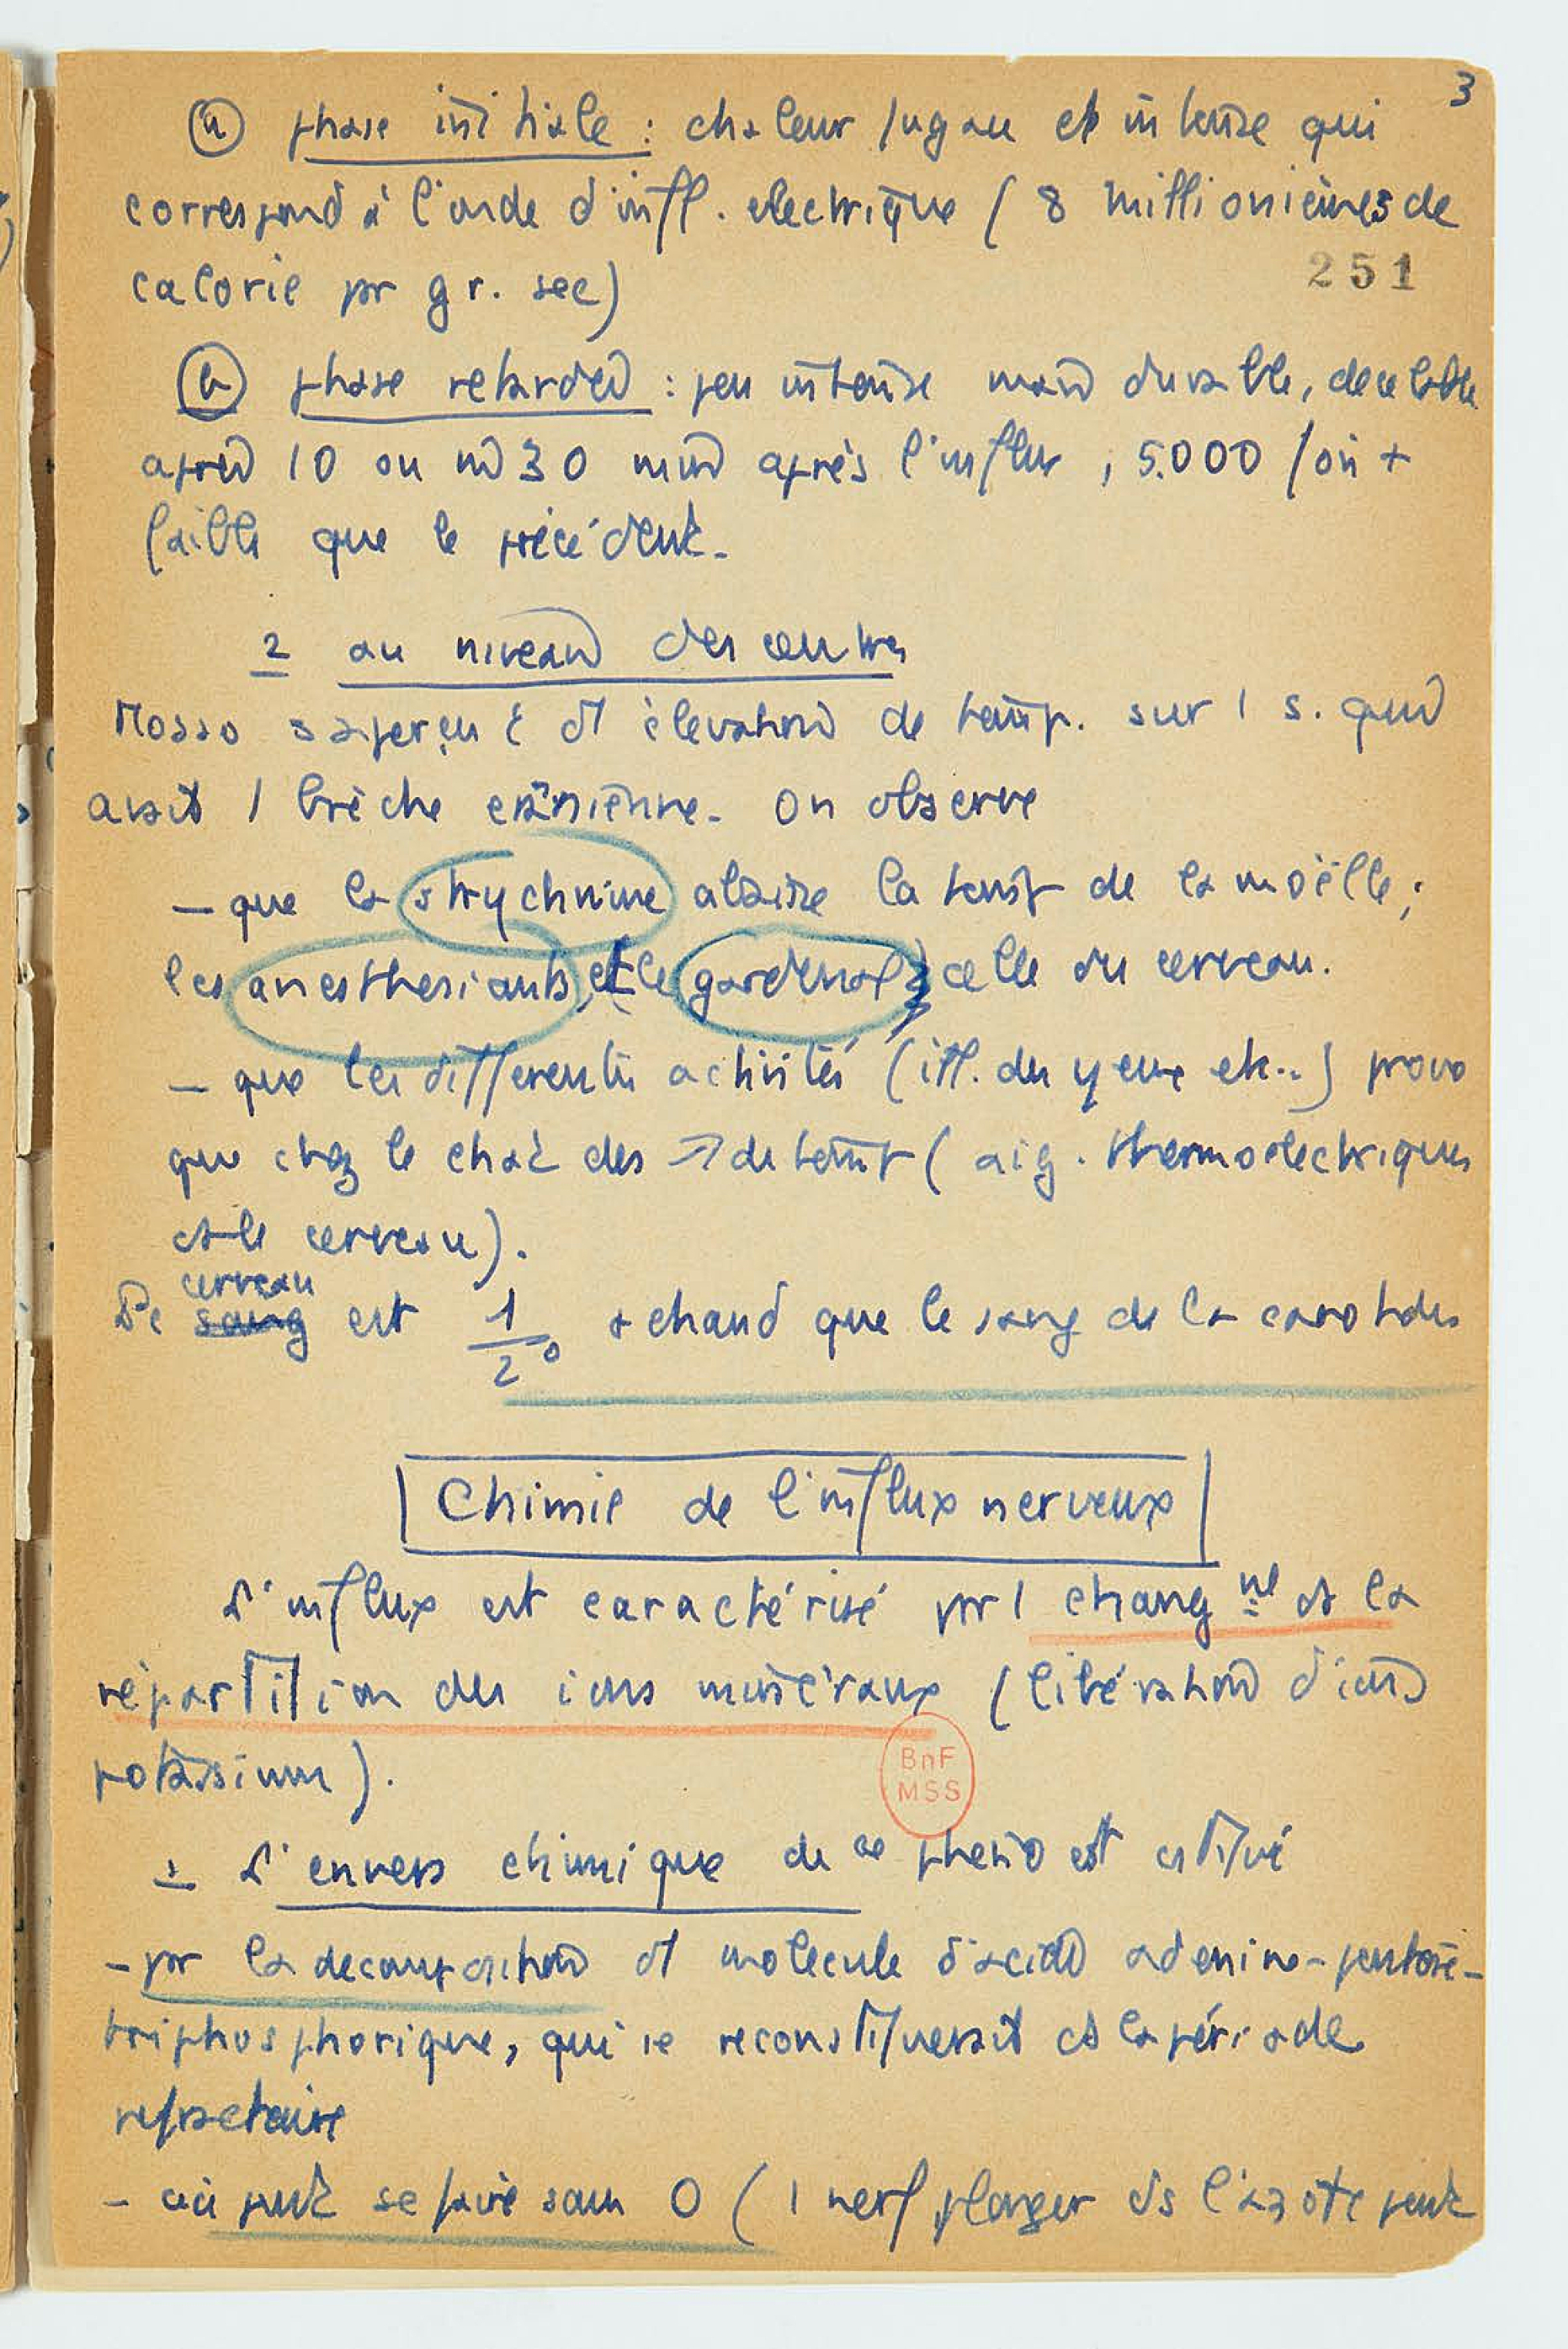 3
(a) phase initiale : chaleur fugace et intense qui
correspond à l'onde d'infl. electrique ( 8 millionièmes de
calorie pr gr. sec)
251
(b) phase retardée : peu intense mais durable, decelable
après 10 ou 30 min après l'influx, 5.000 fois +
faible que le précédent.
2 au niveau des centres
Mosso s'aperçu élévation de temp. sur 1 s. qui
avait 1 brèche crânienne. On observe
- que la strychnine abaisse la temp de la moëlle ;
les anesthesiants, et le gardenal celle du cerveau.
- que les differentes activités (ill. des yeux etc..) provo
que chez le chat des ↗ de temp ( aig. thermoelectriques
ds le cerveau).
cerveau
Le sang est 1/2° + chaud que le sang de la carotide
Chimie de l'influx nerveux
L'influx est caractérisé pr 1 changnt ds la
répartition des ions minéraux (libération d'ions
potassium).
BnF
MSS
1 L'envers chimique de ce phéno est cstitué
- pr la decomposition d'1 molecule d'acide adenine-pentose-
triphosphorique, qui se reconstituerait ds la période
refractaire
- ceci peut se faire sans O ( 1 nerf plonger ds l'azote peut